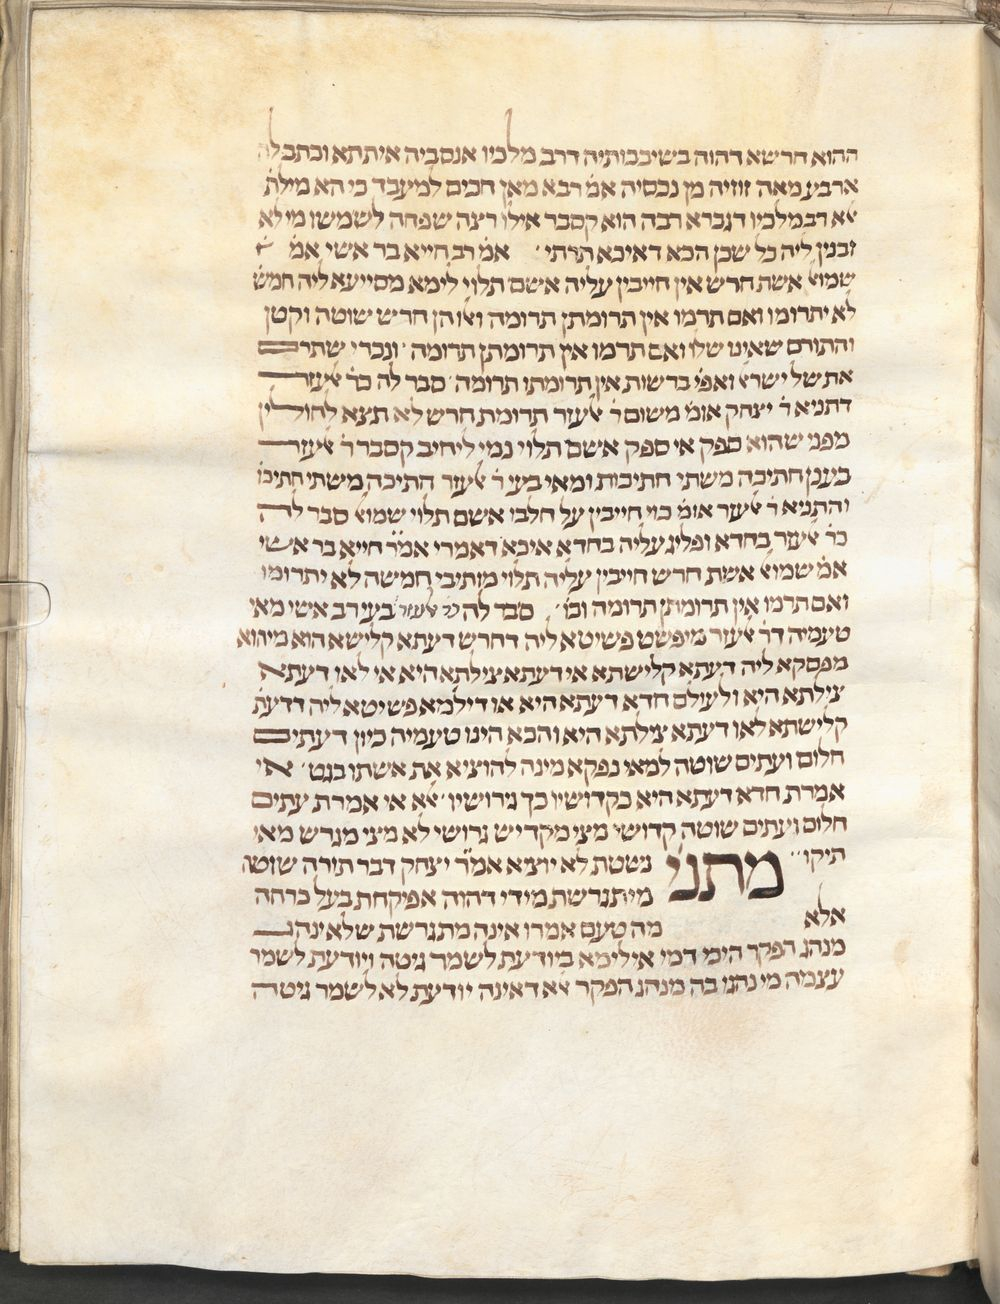 ההוא חרשא דהוה בשיבבותיה דרב מלכיו אנסביה איתתא וכתב לה
ארבע מאה זוזיה מן נכסיה אמ׳ רבא מאן חכים למעבד כי הא מילת׳
ﭏא רב מלכיו דגברא רבה הוא קסבר אילו רצה שפחה לשמשו מי לא
זבנין ליה כל שכן הכא דאיכא תרתי׳ אמ׳ רב חייא בר אשי אמ׳
שמוﭏ אשת חרש אין חייבין עליה אשם תלוי לימא מסייעא ליה חמש׳
לא יתרומו ואם תרמו אין תרומתן תרומה וﭏו הן חרש שוטה וקטן
והתורם שאינו שלו ואם תרמו אין תרומתן תרומה׳ ונכרי שתרם
את של ישרﭏ ואפי׳ ברשות אין תרומתו תרומה׳ סבר לה כר׳ ﭏעזר
דתניא ר׳ יצחק אומ׳ משום ר׳ ﭏעזר תרומת חרש לא תצא לחולין
מפני שהוא ספק אי ספק אשם תלוי נמי ליחייב קסבר ר׳ ﭏעזר
בענן חתיכה משתי חתיכות ומאי בעי ר׳ ﭏעזר חתיכה משתי חתיכו׳
והתניא ר׳ ﭏעזר אומ׳ כוי חייבין על חלבו אשם תלוי שמוﭏ סבר לה
כר׳ ﭏעזר בחדא ופליג עליה בחדא איכא דאמרי אמ׳ ר׳ חייא בר אשי
אמ׳ שמוﭏ אשת חרש חייבין עליה תלוי מתיבי חמשה לא יתרומו
ואם תרמו אין תרומתן תרומה וכו׳ סבר לה כר׳ ﭏעזר בעי רב אשי מאי
טעמיה דר׳ ﭏעזר מיפשט פשיטא ליה דחרש דעתא קלישא הוא מיהוא
מפסקא ליה דעתא קלישתא אי דעתא צילתא היא אי לאו דעתא
צילתא היא ולעולם חדא דעתא היא או דילמא פשיטא ליה דדעת׳
קלישתא לאו דעתא צילתא היא והכא הינו טעמיה כיון דעתים
חלום ועתים שוטה למאי נפקא מינה להוציא את אשתו בגט׳ אי
אמרת חדא דעתא היא כקדושיו כך גירושיו׳ ﭏא אי אמרת עתים
חלום ועתים שוטה קדושי מצי מקדיש גרושי לא מצי מגרש מאי
תיקו׳׳ מתני׳ נשטת לא יוציא אמ׳ ר׳ יצחק דבר תורה שוטה
מיתגרשת מידי דהוה אפיקחת בעל כרחה
אלא מה טעם אמרו אינה מתגרשת שלא ינהג
מנהג הפקר היכי דמי אילימא ביודעת לשמר גיטה ויודעת לשמר
עצמה מי נהגו בה מנהג הפקר ﭏא דאינה יודעת לא לשמר גיטה